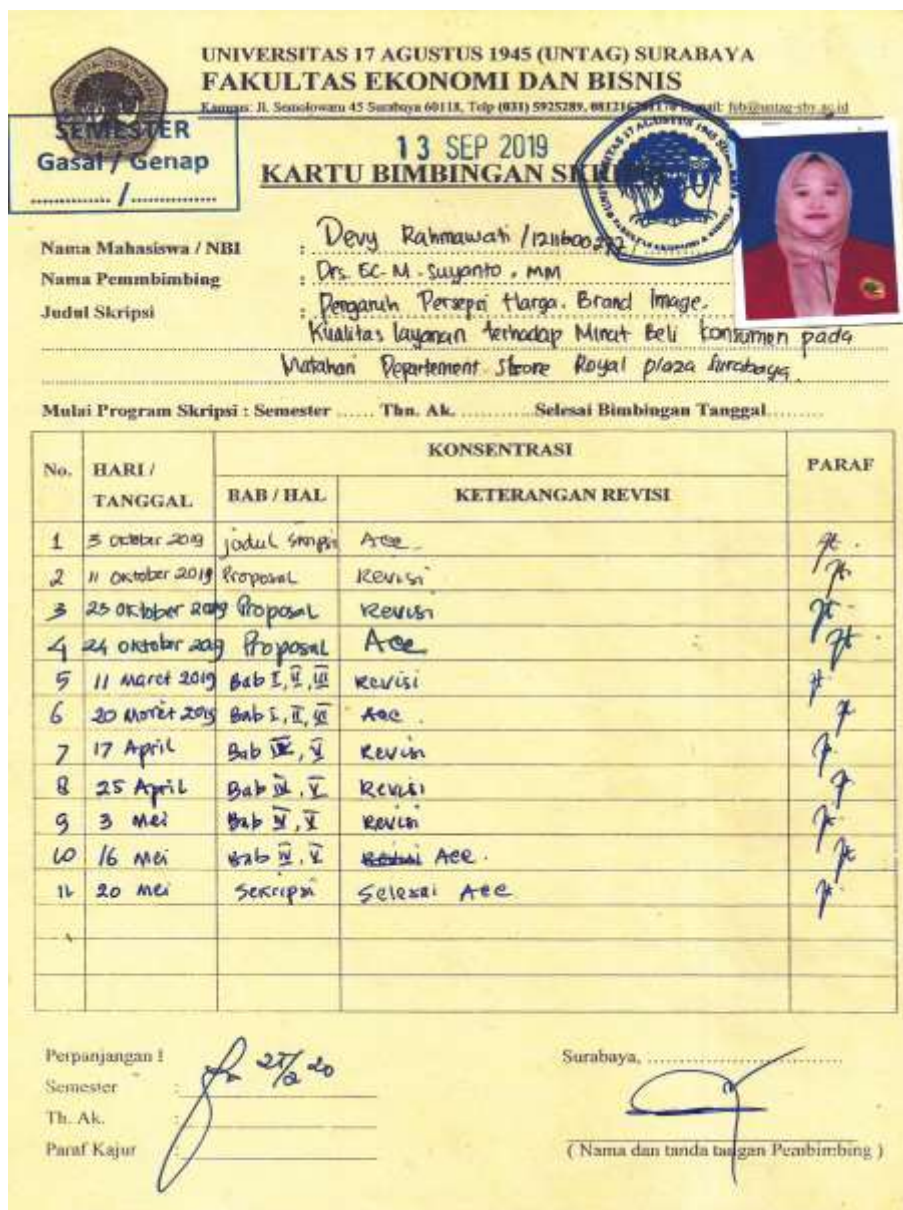 UNIVERSITAS 17 AGUSTUS 1945 (UNTAG) SURABAYA
FAKULTAS EKONOMI DAN BISNIS
Kampus: Jl. Semolowaru 45 Surabaya 60118, Telp (031) 5925289, Email: feb@untag-sby.ac.id
SEMESTER
Gasal / Genap
............. / ...............
13 SEP 2019
KARTU BIMBINGAN
Nama Mahasiswa / NBI : Devy Rahmawati /
Nama Pemmbimbing : Drs. EC. M. Suyanto, MM
Judul Skripsi : Pengaruh Persepsi Harga, Brand Image,
Kualitas layanan terhadap Minat Beli konsumen pada
Matahari Departement Store Royal plaza Surabaya.
Mulai Program Skripsi : Semester ...... Thn. Ak. ...........Selesai Bimbingan Tanggal.........
No. HARI / TANGGAL KONSENTRASI PARAF
BAB / HAL KETERANGAN REVISI
1 3 Oktober 2019 judul skripsi Acc
2 11 Oktober 2019 Proposal Revisi
3 23 Oktober 2019 Proposal Revisi
4 24 Oktober 2019 Proposal Acc
5 11 Maret 2019 Bab I, II, III Revisi
6 20 Maret 2019 Bab I, II, III Acc
7 17 April Bab IV, V Revisi
8 25 April Bab IV, V Revisi
9 3 Mei Bab IV, V Revisi
10 16 Mei Bab IV, V Acc.
11 20 Mei Sekripsi Selesai Acc
Perpanjangan I
Semester :
Th. Ak. :
Paraf Kajur :
Surabaya, ..................................
( Nama dan tanda tangan Pembimbing )